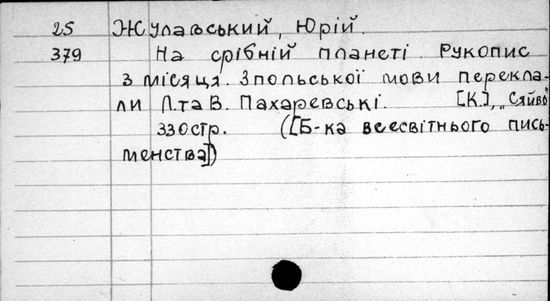 25 Жулавський, Юрій.
379 На срібній планеті. Рукопис
з місяця. З польської мови перекла-
ли Л. та В. Пахаревські. [К.], „Сяйво"
330 стр. ([Б-ка всесвітнього пись-
менства])